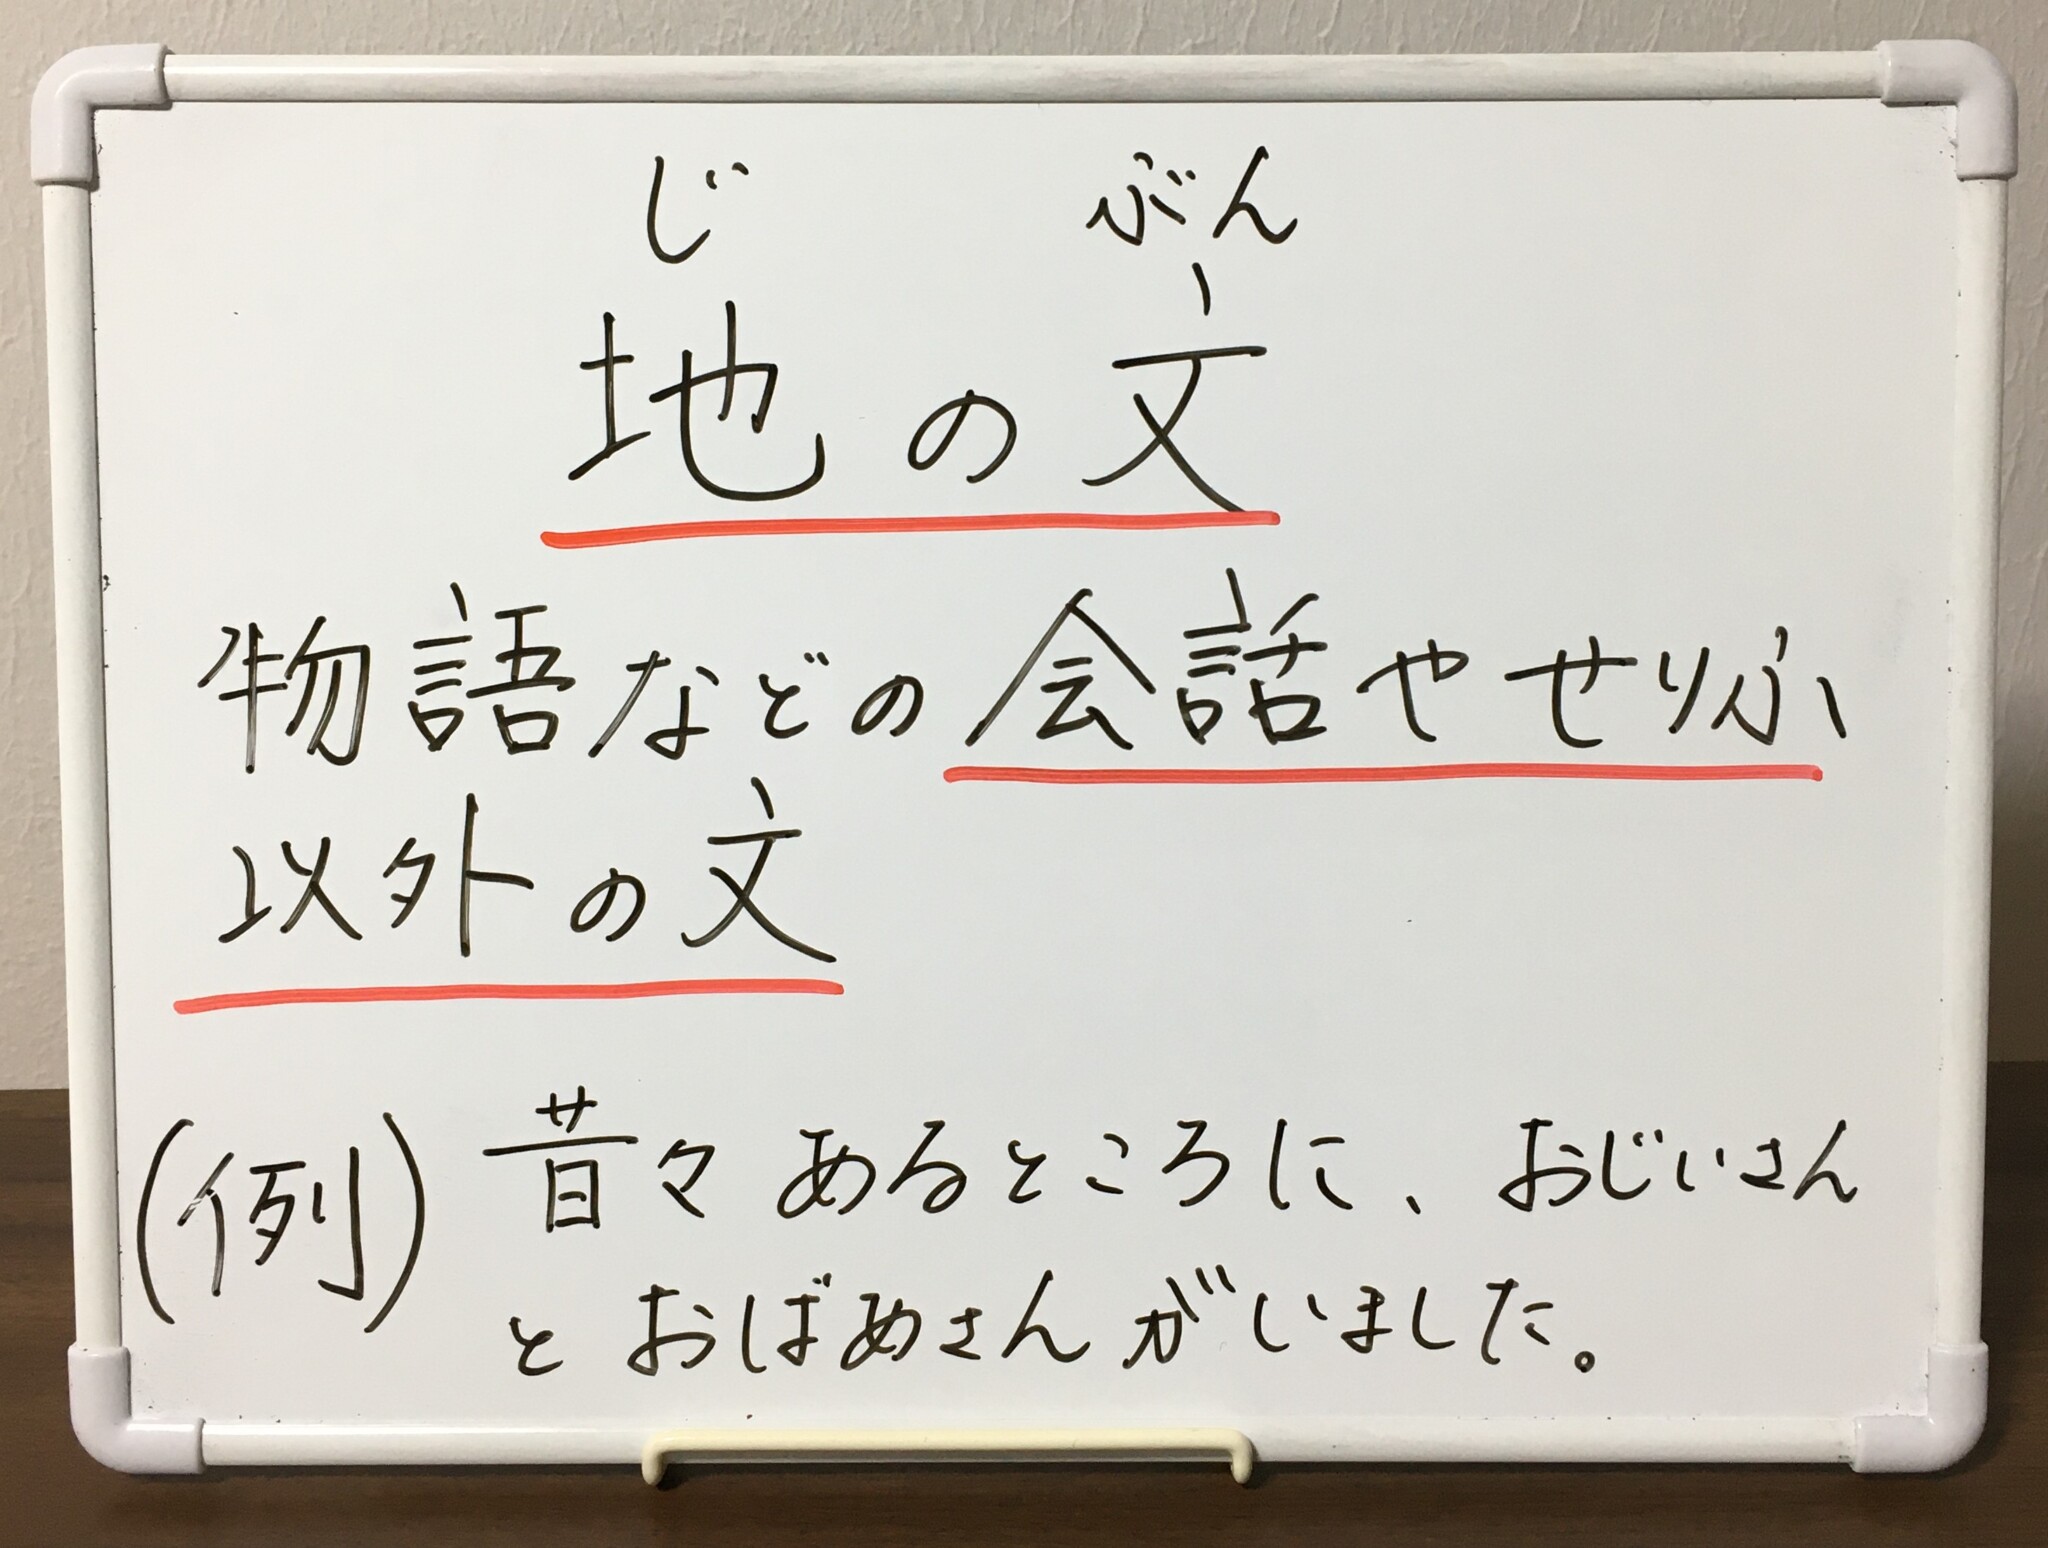 じ ぶん
地の文
物語などの会話やせりふ
以外の文
(例) 昔々あるところに、おじいさん
とおばあさんがいました。